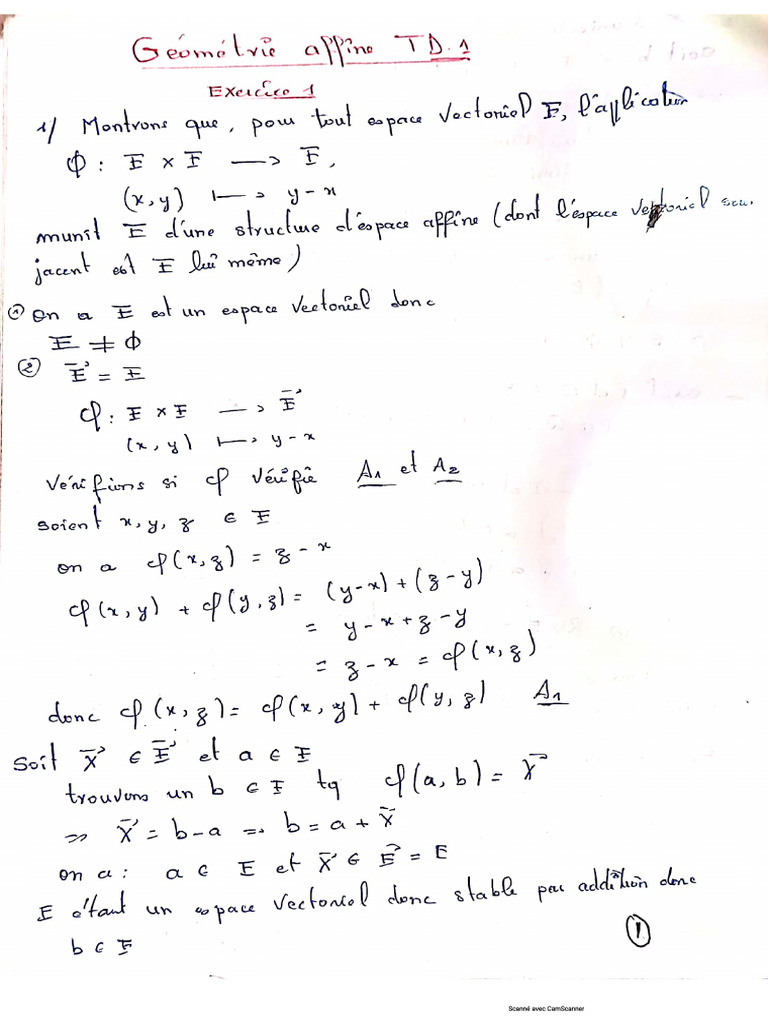 Géométrie affine TD.1
Exercice 1
1/ Montrons que, pour tout espace vectoriel E, l'application
ϕ : E × E ⟶ E,
(x, y) ⟼ y - x
munit E d'une structure d'espace affine (dont l'espace vectoriel sou.
jacent est E lui même)
① On a E est un espace vectoriel donc
E ≠ ϕ
② E⃗ = E
φ : E × E ⟶ E⃗
(x, y) ⟼ y - x
Vérifions si φ vérifie A1 et A2
soient x, y, z ∈ E
on a φ(x, z) = z - x
φ(x, y) + φ(y, z) = (y-x) + (z-y)
= y - x + z - y
= z - x = φ(x, z)
donc φ(x, z) = φ(x, y) + φ(y, z) A1
Soit X⃗ ∈ E⃗ et a ∈ E
trouvons un b ∈ E tq φ(a, b) = X⃗
⇒ X⃗ = b-a ⇒ b = a + X⃗
on a : a ∈ E et X⃗ ∈ E⃗ = E
E étant un espace vectoriel donc stable par addition donc
b ∈ E
①
Scanné avec CamScanner